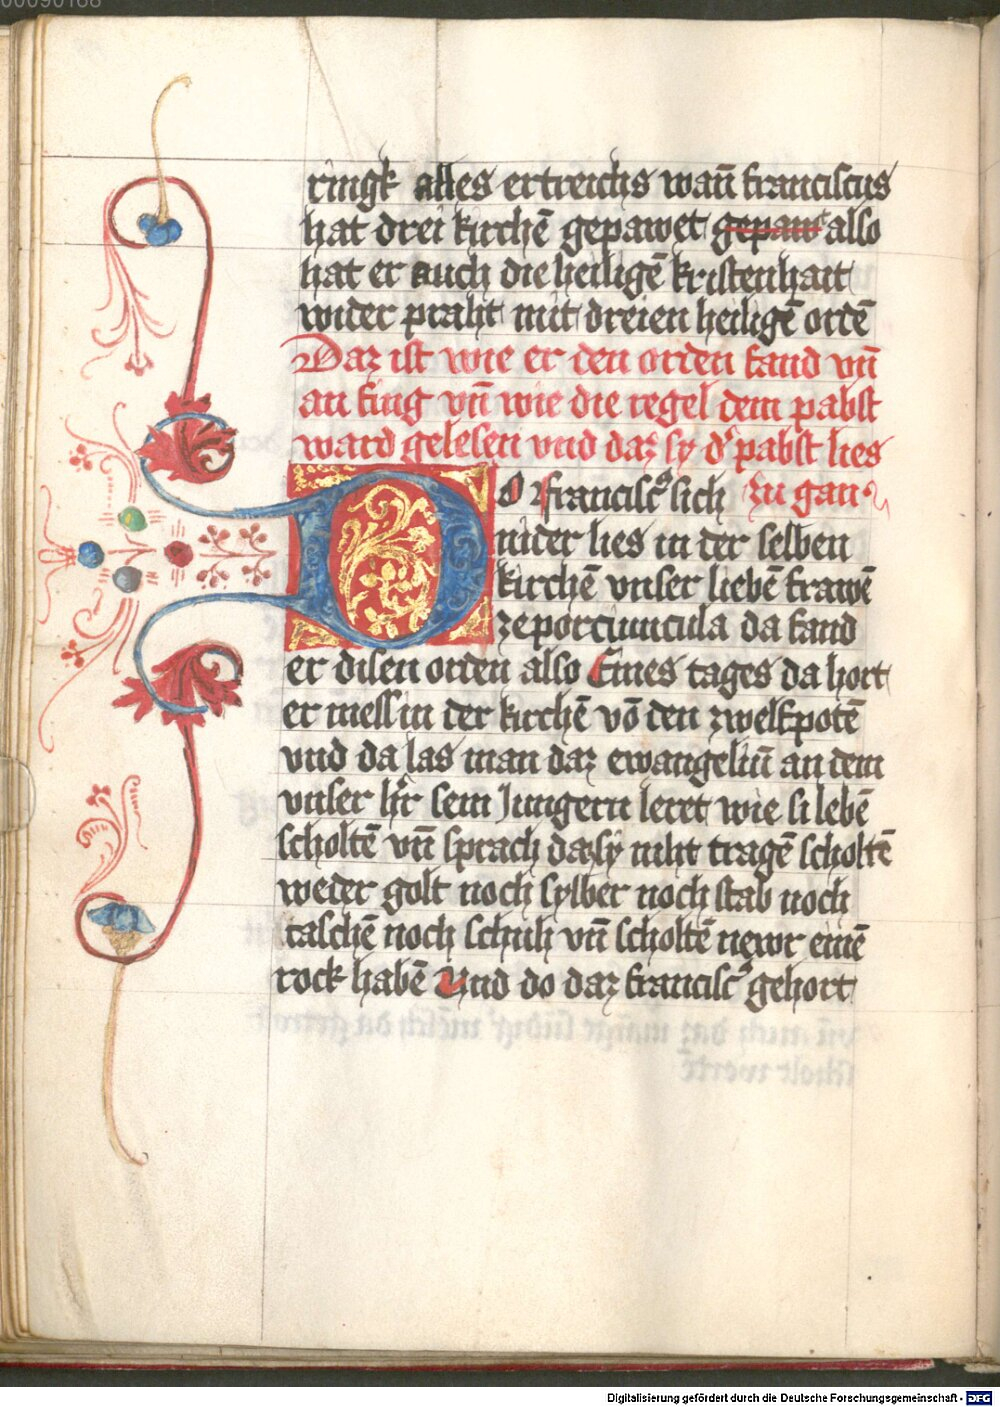 00090168
ringk alles ertreichs wan̄ franciscus
hat drei kirchē gepawet gepaut also
hat er auch die heiligē kristenhait
wider praht mit dreien heiligē ordē
Daz ist wie er den orden fand vn̄
an fing vn̄ wie die regel dem pabst
ward gelesen vnd daz sy dʼ pabst lies
DO Franciscꝰ sich zu gan
nider lies in der selben
kirchē vnser liebē frawē
ze porciuncula da fand
er disen orden also Eines tages da hort
er mess in der kirchē vō den zwelfpotē
vnd da las man daz ewangeliū an dem
vnser hʼr sein Jungern leret wie si lebē
scholtē vn̄ sprach daz sy niht tragē scholtē
weder golt noch sylber noch stab noch
taschē noch schuh vn̄ scholtē newr einē
rock habē Vnd do daz franciscꝰ gehort
Digitalisierung gefördert durch die Deutsche Forschungsgemeinschaft - DFG